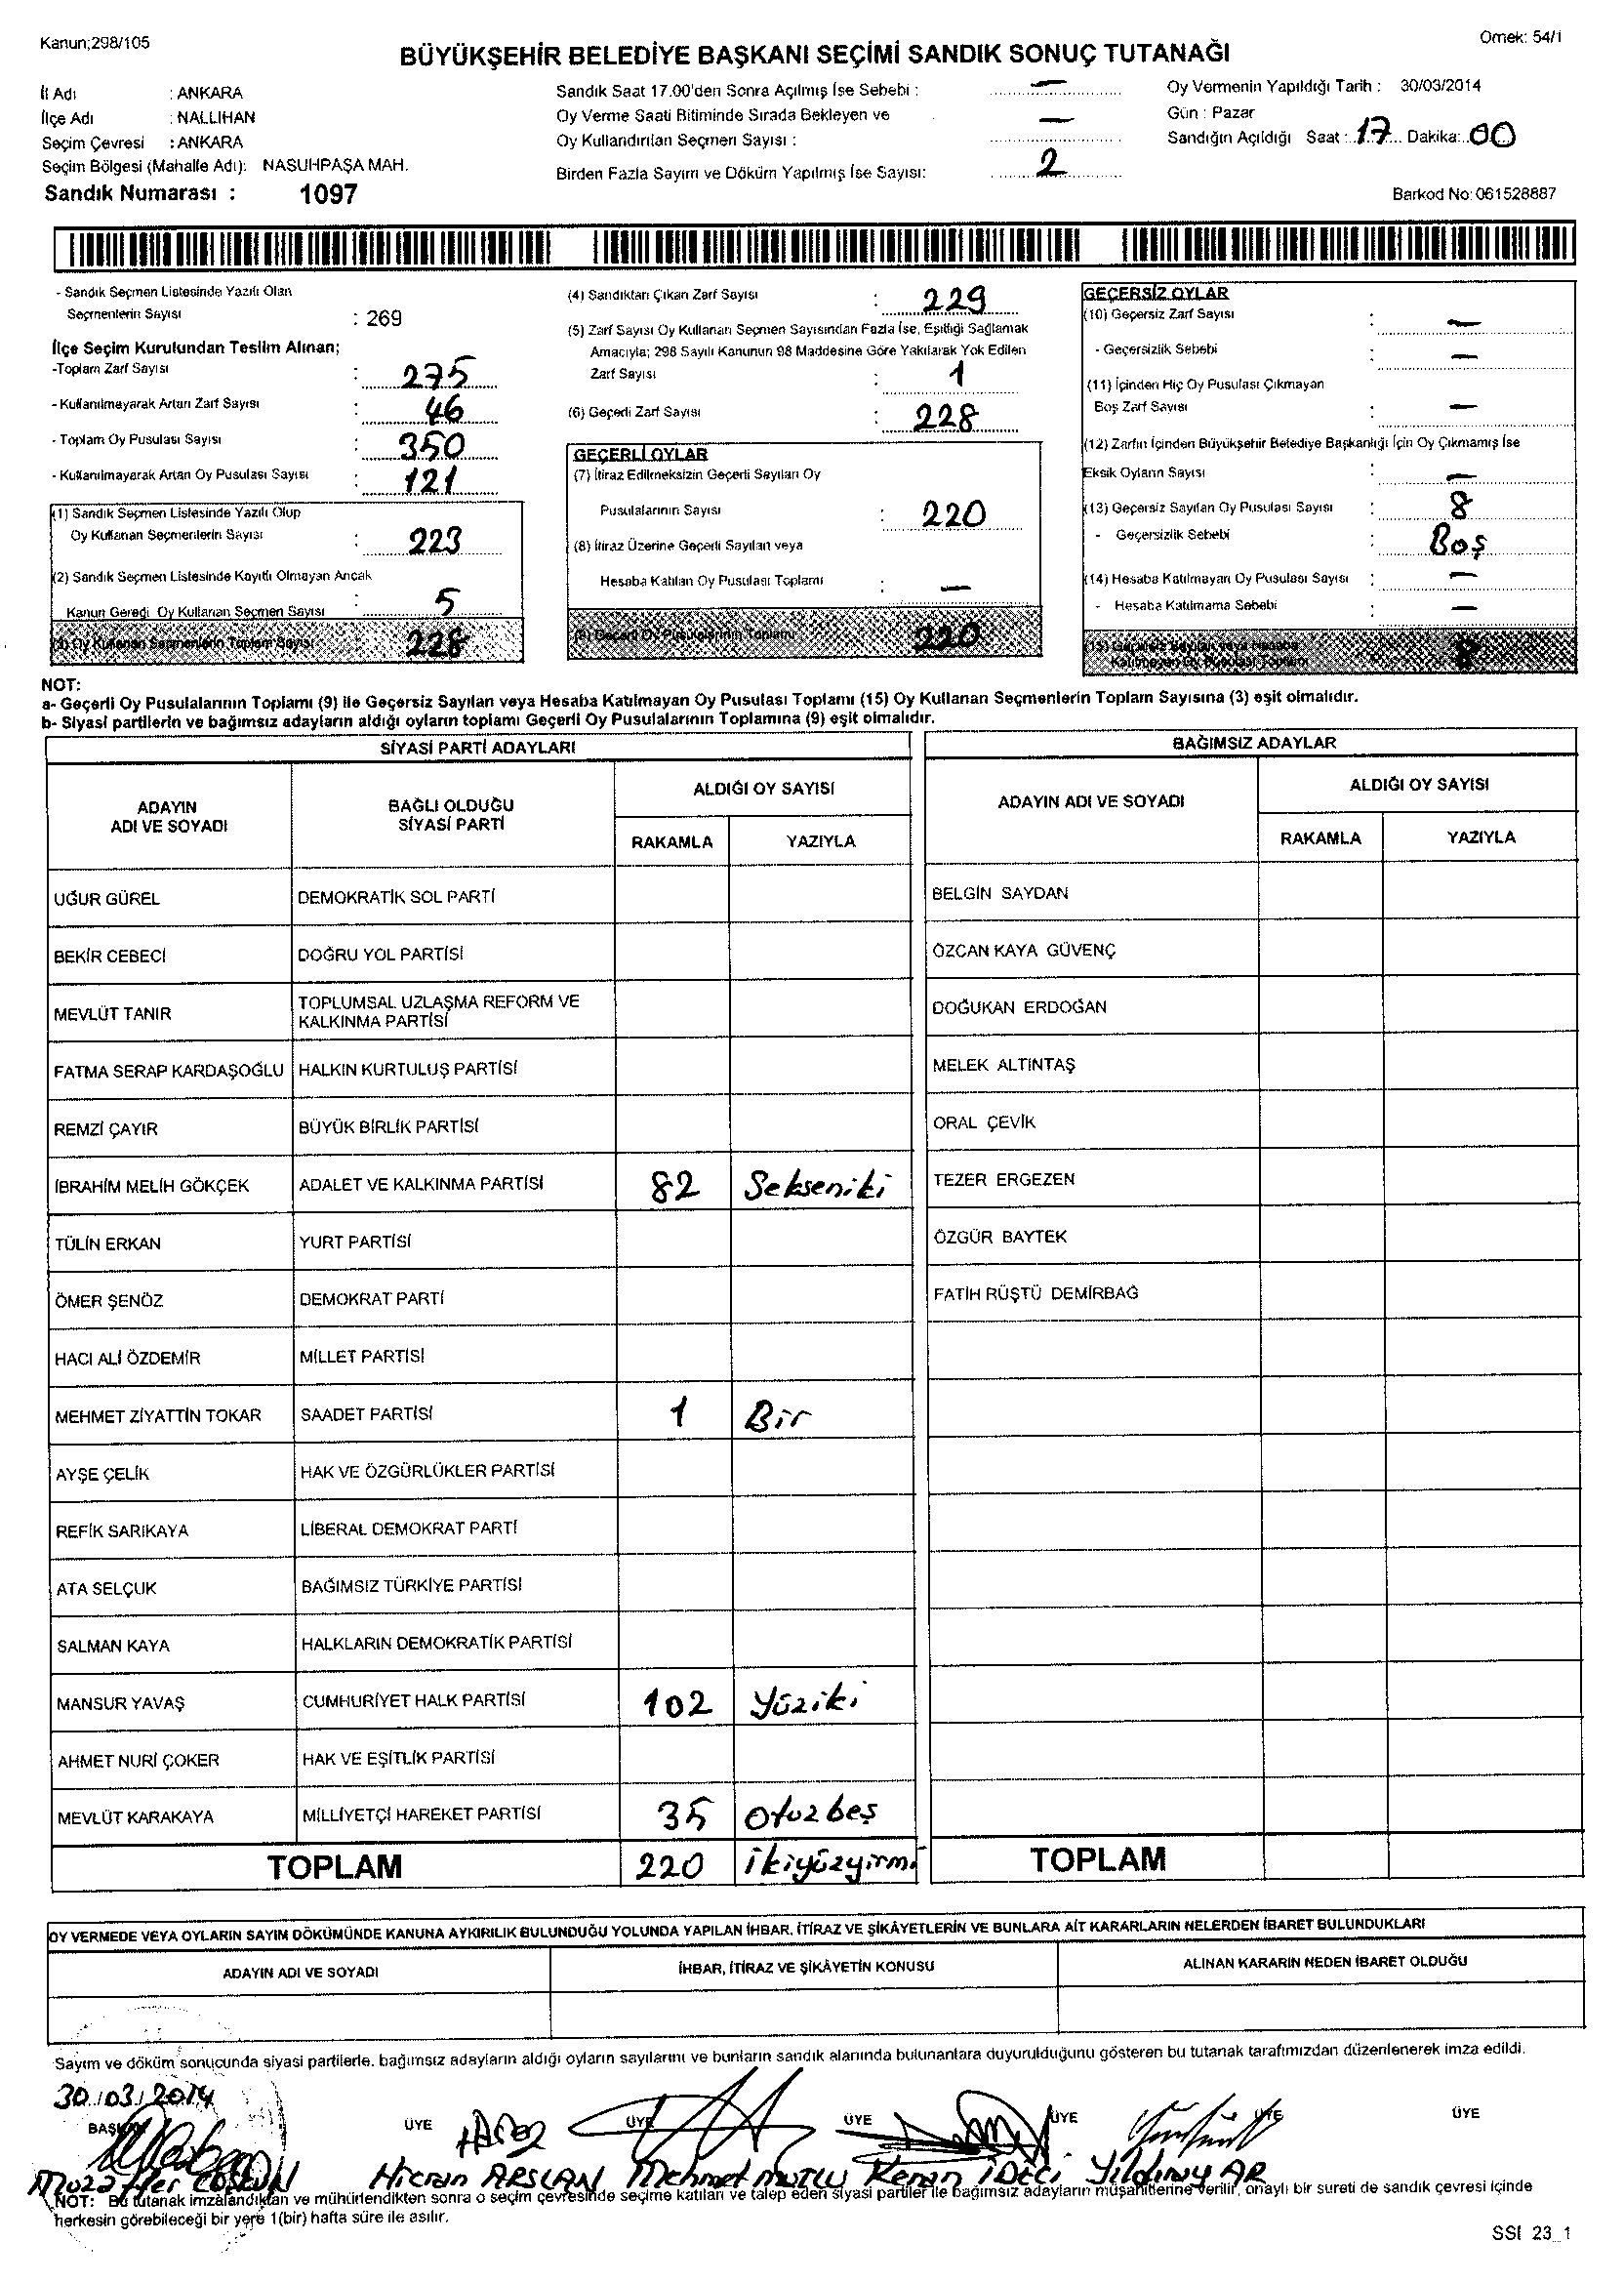 Kanun;298/105
Örnek: 54/1
BÜYÜKŞEHİR BELEDİYE BAŞKANI SEÇİMİ SANDIK SONUÇ TUTANAĞI
İl Adı : ANKARA
İlçe Adı : NALLIHAN
Seçim Çevresi : ANKARA
Seçim Bölgesi (Mahalle Adı): NASUHPAŞA MAH.
Sandık Numarası : 1097
Sandık Saat 17.00'den Sonra Açılmış İse Sebebi : —
Oy Verme Saati Bitiminde Sırada Bekleyen ve
Oy Kullandırılan Seçmen Sayısı : —
Birden Fazla Sayım ve Döküm Yapılmış İse Sayısı: 2
Oy Vermenin Yapıldığı Tarih : 30/03/2014
Gün : Pazar
Sandığın Açıldığı Saat : 17 Dakika: 00
Barkod No: 061528887
- Sandık Seçmen Listesinde Yazılı Olan
Seçmenlerin Sayısı : 269
İlçe Seçim Kurulundan Teslim Alınan;
-Toplam Zarf Sayısı : 275
- Kullanılmayarak Artan Zarf Sayısı : 46
- Toplam Oy Pusulası Sayısı : 350
- Kullanılmayarak Artan Oy Pusulası Sayısı : 121
(1) Sandık Seçmen Listesinde Yazılı Olup
Oy Kullanan Seçmenlerin Sayısı : 223
(2) Sandık Seçmen Listesinde Kayıtlı Olmayan Ancak
Kanun Gereği Oy Kullanan Seçmen Sayısı : 5
(3) Oy Kullanan Seçmenlerin Toplam Sayısı : 228
(4) Sandıktan Çıkan Zarf Sayısı : 229
(5) Zarf Sayısı Oy Kullanan Seçmen Sayısından Fazla İse, Eşitliği Sağlamak
Amacıyla; 298 Sayılı Kanunun 98 Maddesine Göre Yakılarak Yok Edilen
Zarf Sayısı : 1
(6) Geçerli Zarf Sayısı : 228
GEÇERLİ OYLAR
(7) İtiraz Edilmeksizin Geçerli Sayılan Oy
Pusulalarının Sayısı : 220
(8) İtiraz Üzerine Geçerli Sayılan veya
Hesaba Katılan Oy Pusulası Toplamı : —
(9) Geçerli Oy Pusulalarının Toplamı : 220
GEÇERSİZ OYLAR
(10) Geçersiz Zarf Sayısı : —
- Geçersizlik Sebebi : —
(11) İçinden Hiç Oy Pusulası Çıkmayan
Boş Zarf Sayısı : —
(12) Zarfın İçinden Büyükşehir Belediye Başkanlığı İçin Oy Çıkmamış İse
Eksik Oyların Sayısı : —
(13) Geçersiz Sayılan Oy Pusulası Sayısı : 8
- Geçersizlik Sebebi : Boş
(14) Hesaba Katılmayan Oy Pusulası Sayısı : —
- Hesaba Katılmama Sebebi : —
(15) Geçersiz Sayılan veya Hesaba
Katılmayan Oy Pusulası Toplamı : 8
NOT:
a- Geçerli Oy Pusulalarının Toplamı (9) ile Geçersiz Sayılan veya Hesaba Katılmayan Oy Pusulası Toplamı (15) Oy Kullanan Seçmenlerin Toplam Sayısına (3) eşit olmalıdır.
b- Siyasi partilerin ve bağımsız adayların aldığı oyların toplamı Geçerli Oy Pusulalarının Toplamına (9) eşit olmalıdır.
SİYASİ PARTİ ADAYLARI
ADAYIN ADI VE SOYADI
BAĞLI OLDUĞU SİYASİ PARTİ
ALDIĞI OY SAYISI
RAKAMLA YAZIYLA
UĞUR GÜREL DEMOKRATİK SOL PARTİ
BEKİR CEBECİ DOĞRU YOL PARTİSİ
MEVLÜT TANIR TOPLUMSAL UZLAŞMA REFORM VE KALKINMA PARTİSİ
FATMA SERAP KARDAŞOĞLU HALKIN KURTULUŞ PARTİSİ
REMZİ ÇAYIR BÜYÜK BİRLİK PARTİSİ
İBRAHİM MELİH GÖKÇEK ADALET VE KALKINMA PARTİSİ 82 Sekseniki
TÜLİN ERKAN YURT PARTİSİ
ÖMER ŞENÖZ DEMOKRAT PARTİ
HACI ALİ ÖZDEMİR MİLLET PARTİSİ
MEHMET ZİYATTİN TOKAR SAADET PARTİSİ 1 Bir
AYŞE ÇELİK HAK VE ÖZGÜRLÜKLER PARTİSİ
REFİK SARIKAYA LİBERAL DEMOKRAT PARTİ
ATA SELÇUK BAĞIMSIZ TÜRKİYE PARTİSİ
SALMAN KAYA HALKLARIN DEMOKRATİK PARTİSİ
MANSUR YAVAŞ CUMHURİYET HALK PARTİSİ 102 Yüziki
AHMET NURİ ÇOKER HAK VE EŞİTLİK PARTİSİ
MEVLÜT KARAKAYA MİLLİYETÇİ HAREKET PARTİSİ 35 Otuzbeş
TOPLAM 220 İkiyüzyirmi
BAĞIMSIZ ADAYLAR
ADAYIN ADI VE SOYADI
ALDIĞI OY SAYISI
RAKAMLA YAZIYLA
BELGİN SAYDAN
ÖZCAN KAYA GÜVENÇ
DOĞUKAN ERDOĞAN
MELEK ALTINTAŞ
ORAL ÇEVİK
TEZER ERGEZEN
ÖZGÜR BAYTEK
FATİH RÜŞTÜ DEMİRBAĞ
TOPLAM
OY VERMEDE VEYA OYLARIN SAYIM DÖKÜMÜNDE KANUNA AYKIRILIK BULUNDUĞU YOLUNDA YAPILAN İHBAR, İTİRAZ VE ŞİKÂYETLERİN VE BUNLARA AİT KARARLARIN NELERDEN İBARET BULUNDUKLARI
ADAYIN ADI VE SOYADI
İHBAR, İTİRAZ VE ŞİKÂYETİN KONUSU
ALINAN KARARIN NEDEN İBARET OLDUĞU
Sayım ve döküm sonucunda siyasi partilerle, bağımsız adayların aldığı oyların sayılarını ve bunların sandık alanında bulunanlara duyurulduğunu gösteren bu tutanak tarafımızdan düzenlenerek imza edildi.
30/03/2014
BAŞKAN ÜYE ÜYE ÜYE ÜYE ÜYE ÜYE
Muzaffer COŞKUN Hicran ARSLAN Mehmet MUTLU Kenan İDECİ Yıldıray AR
NOT: Bu tutanak imzalandıktan ve mühürlendikten sonra o seçim çevresinde seçime katılan ve talep eden siyasi partiler ile bağımsız adayların müşahitlerine verilir, onaylı bir sureti de sandık çevresi içinde
herkesin görebileceği bir yere 1(bir) hafta süre ile asılır.
SSI 23_1